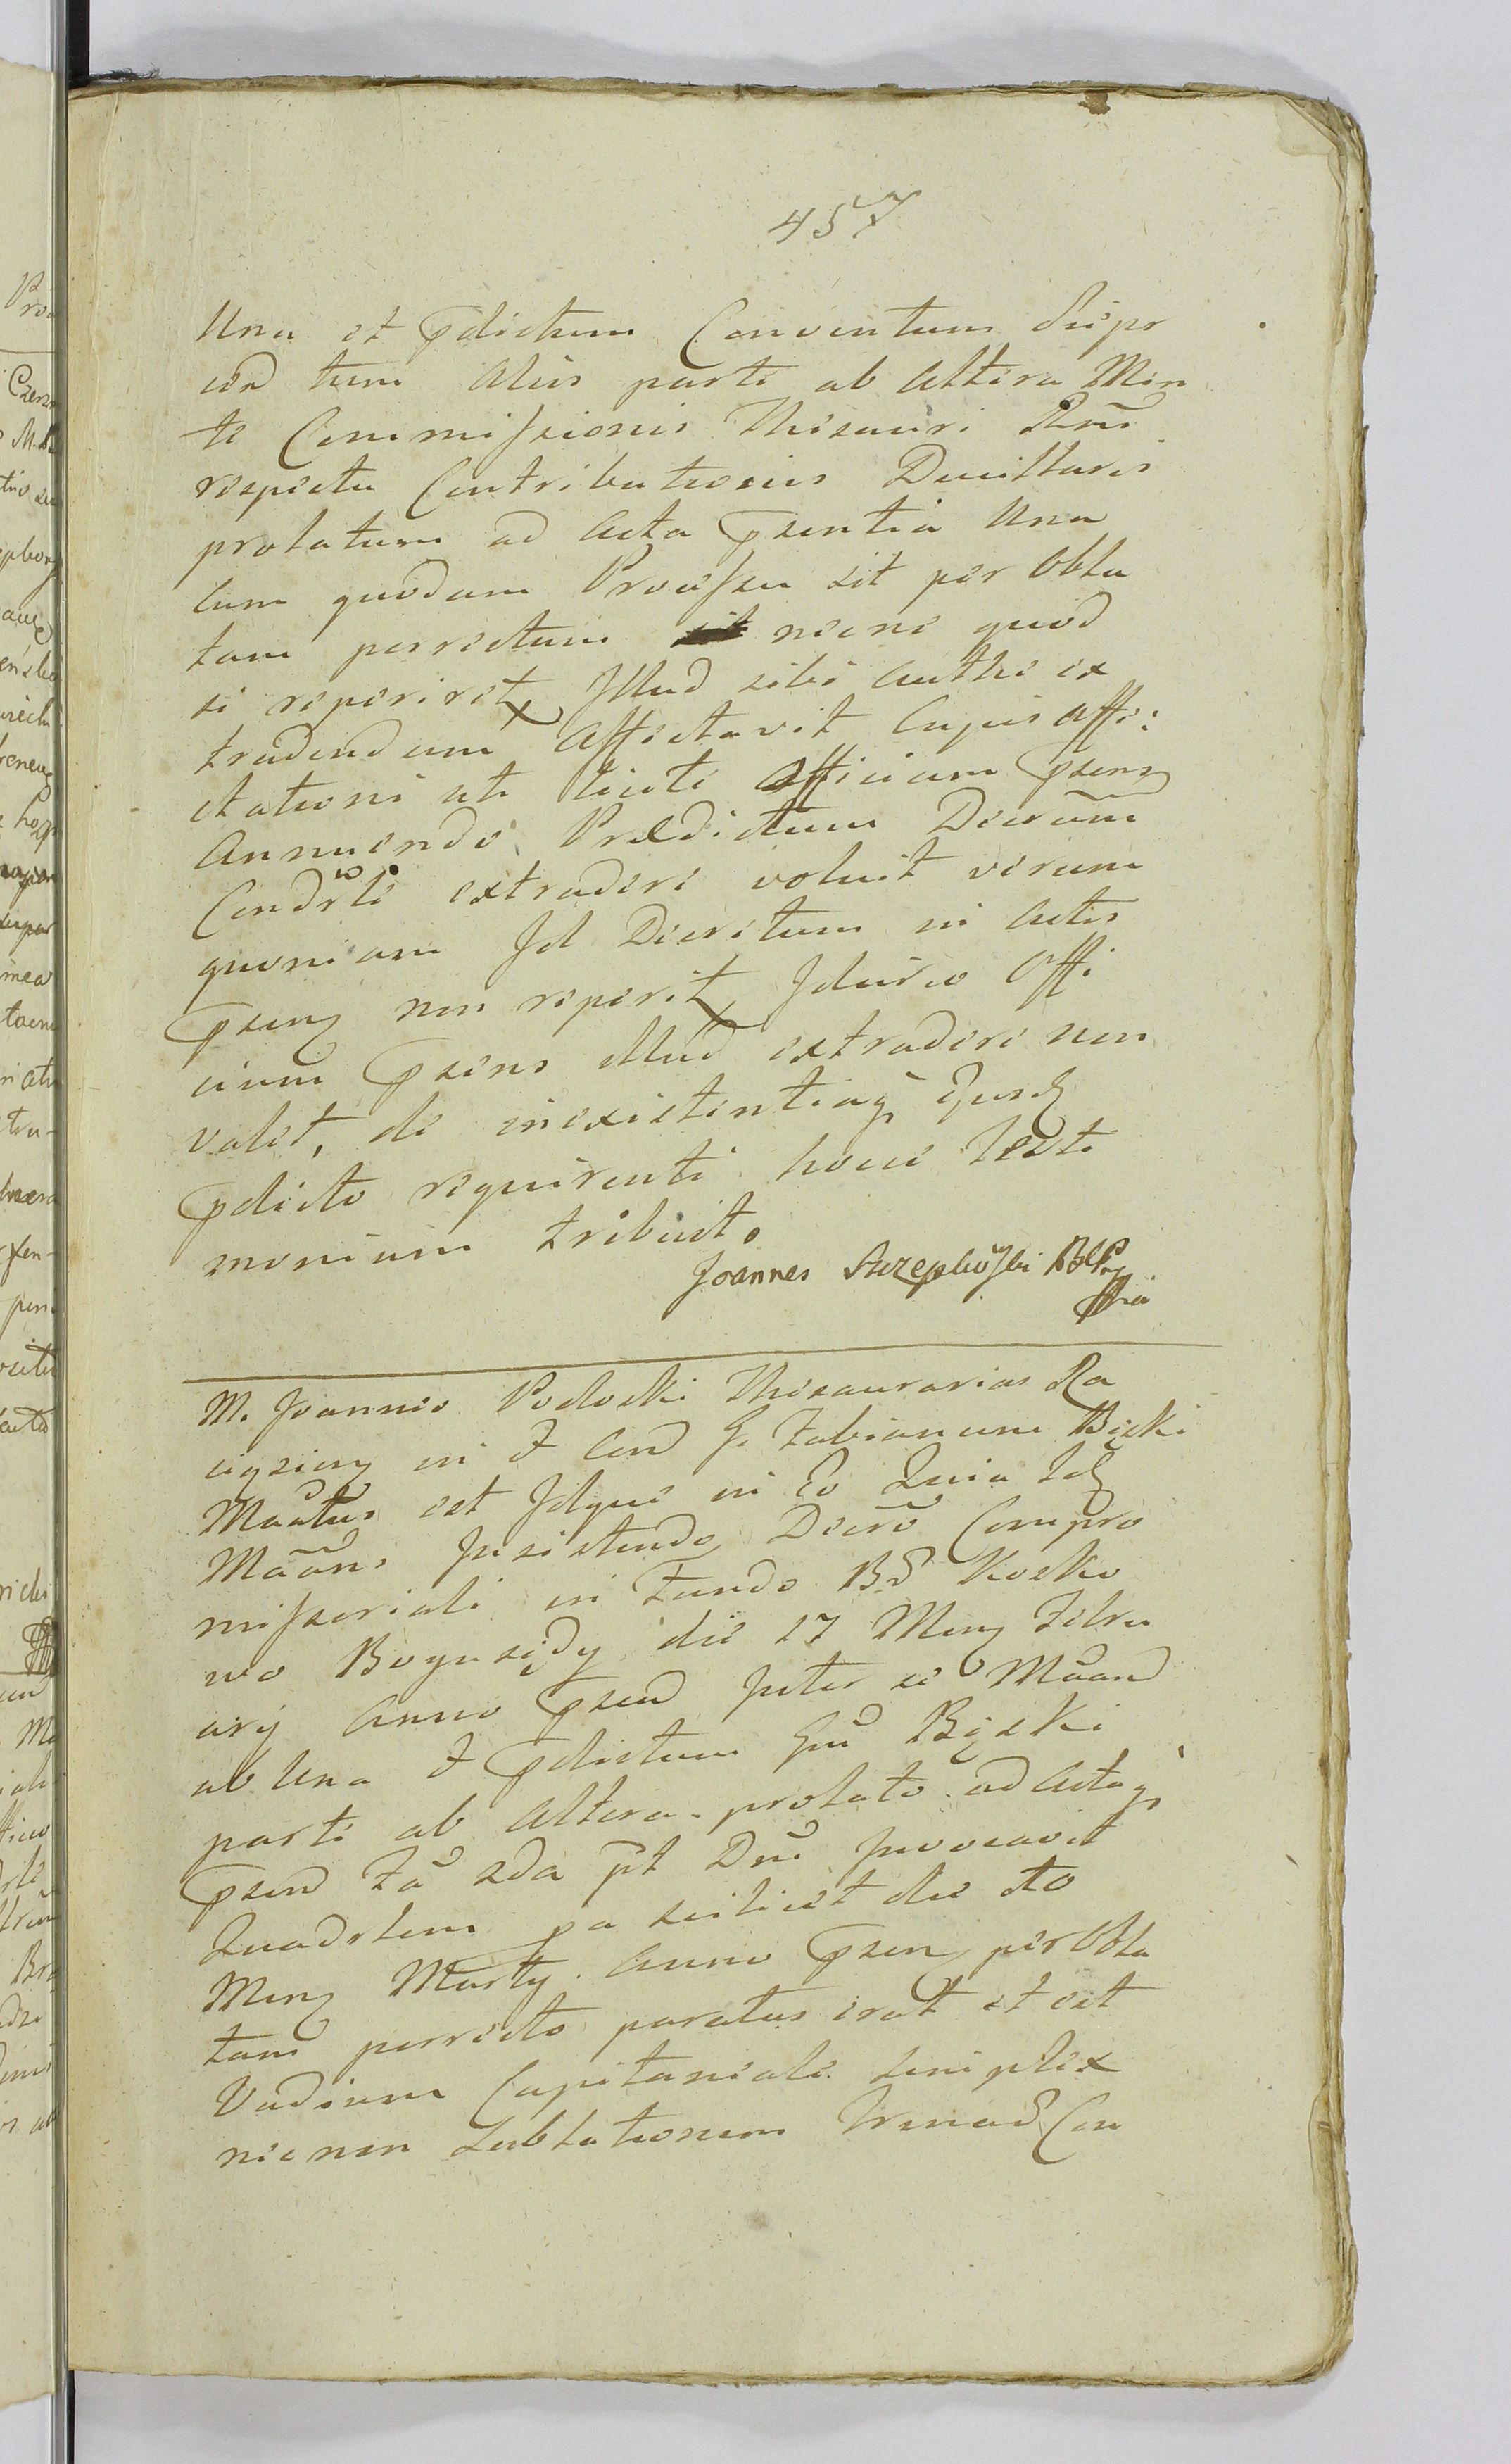 457
Una et pdictum Conventum Suipr
tum Alius parte ab Altera Men
te Commissionis Thesauri Rni
respectu Contributionis Duillaris
prolatum ad Acta psentia Una
Cum quodam Processu sit per Obla
tam porrectum necne quod
si reperiret Illud sibi authe ex
tradendum Affectavit Cujus affe:
ctationi uti licite Officium psens
Annuendo Prædictum Decrum
extradere voluit verum
quoniam Id Decretum in Actis
psens non reperit, Idcirco Offi
cium psens Illud extradere non
valet, de inexistentiaq Ejusd
pdicto requirenti hocce Testi
monium tribuit.
Joannes

M. Joannes Podoski Thesaurarius Ra
ciąziens in et G. Fabianum Bięski
est Idque in Eo Quia Id
Insistendo Decro Compro
missoriali in Fundo Bd Kosko
wo die 17 Mens Febru
arij Anno psend Inter se
ab Una et pdictum Gnu Bięski
parte ab Altera prolato ad Actaq
psend Fa 2da pt Dni Invocavit
Quadrlem pa scilicet die
Mens Martij Anno psens per Obla
tam porrecto paratus erat et est
Vadium Capitaneale simplex
nec non Sublationem Con